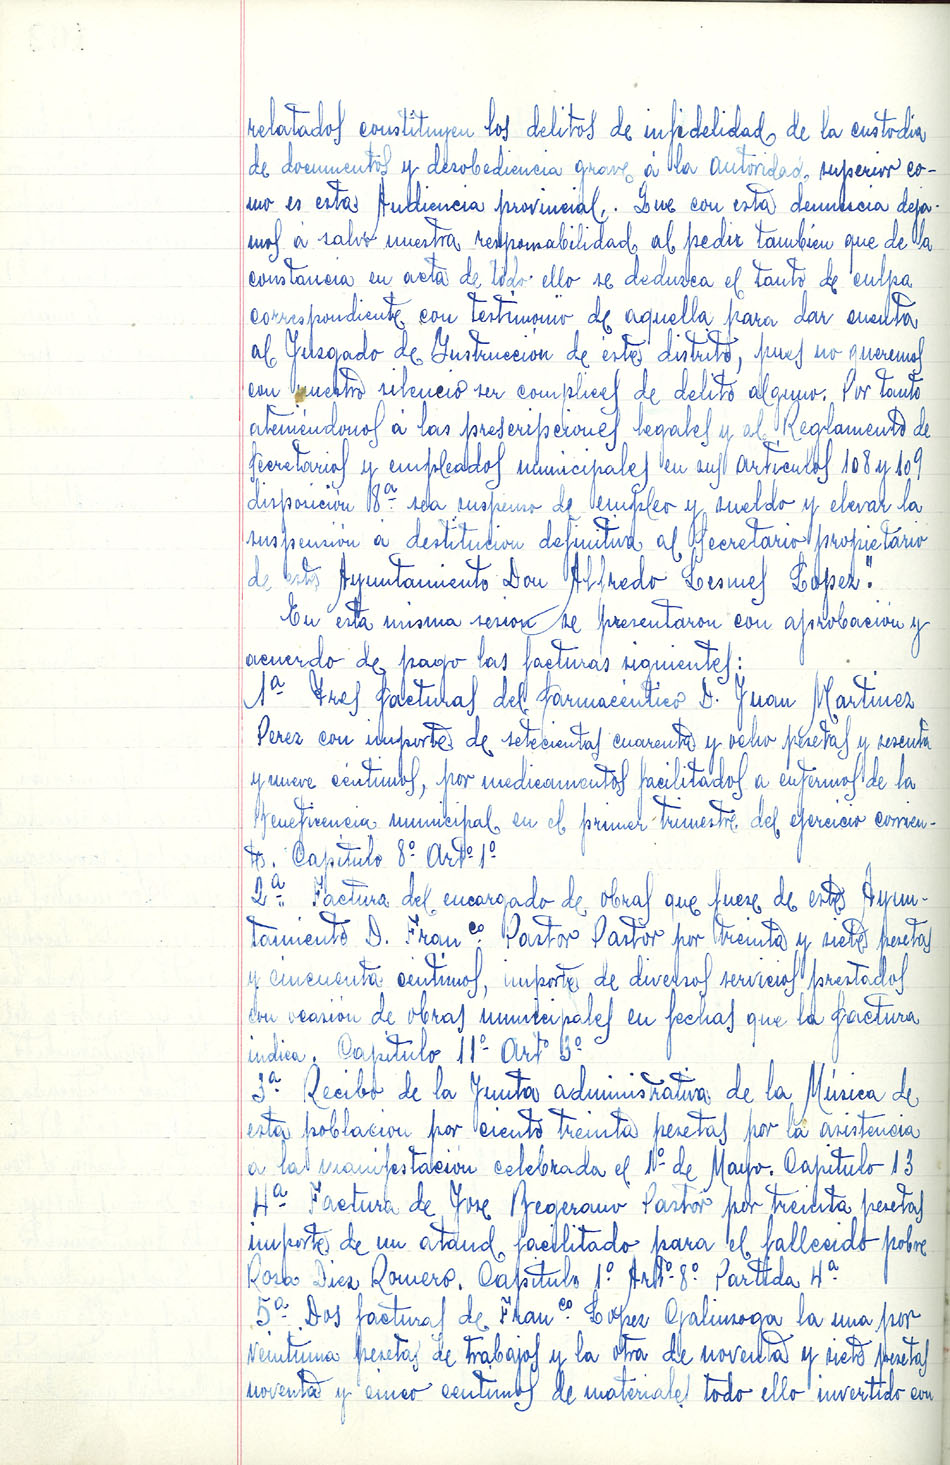 relatados constituyen los delitos de infidelidad de la custodia
de documentos y desobediencia grave á la autoridad superior co-
mo es esta Audiencia provincial. Que con esta denuncia deja-
mos á salvo nuestra responsabilidad al pedir también que de la
constancia en acta de todo ello se deduzca el tanto de culpa
correspondiente con testimonio de aquella para dar cuenta
al Juzgado de Instrucción de este distrito, pues no queremos
con nuestro silencio ser complices de delito alguno. Por tanto
ateniéndonos á las prescripciones legales y al Reglamento de
Secretarios y empleados municipales en sus artículos 108 y 109
disposición 8ª sea suspenso de empleo y sueldo y elevar la
suspensión á destitucion definitiva al Secretario propietario
de este Ayuntamiento Don Alfredo Lesmes Lopez".
En esta misma sesion se presentaron con aprobación y
acuerdo de pago las facturas siguientes:
1ª Tres facturas del farmacéutico D. Juan Martinez
Perez con importe de setecientas cuarenta y ocho pesetas y sesenta
y nueve céntimos, por medicamentos facilitados a enfermos de la
Beneficencia municipal en el primer trimestre del ejercicio corrien-
te. Capítulo 8º Artº 1º
2ª Factura del encargado de obras que fuese de este Ayun-
tamiento D. Franco. Pastor Pastor por treinta y siete pesetas
y cincuenta céntimos, importe de diversos servicios prestados
con ocasión de obras municipales en fechas que la factura
indica. Capitulo 11º Artº 3º
3ª Recibo de la Junta administrativa de la Música de
esta poblacion por ciento treinta pesetas por la asistencia
a la manifestación celebrada el 1º de Mayo. Capitulo 13
4ª Factura de Jose Begerano Pastor por treinta pesetas
importe de un ataud facilitado para el fallecido pobre
Rosa Diez Romero. Capitulo 1º Artº 8º Partida 4ª
5ª Dos facturas de Franco. Lopez Galinzoga la una por
veintiuna pesetas de trabajos y la otra de noventa y siete pesetas
noventa y cinco centimos de materiales todo ello invertido con